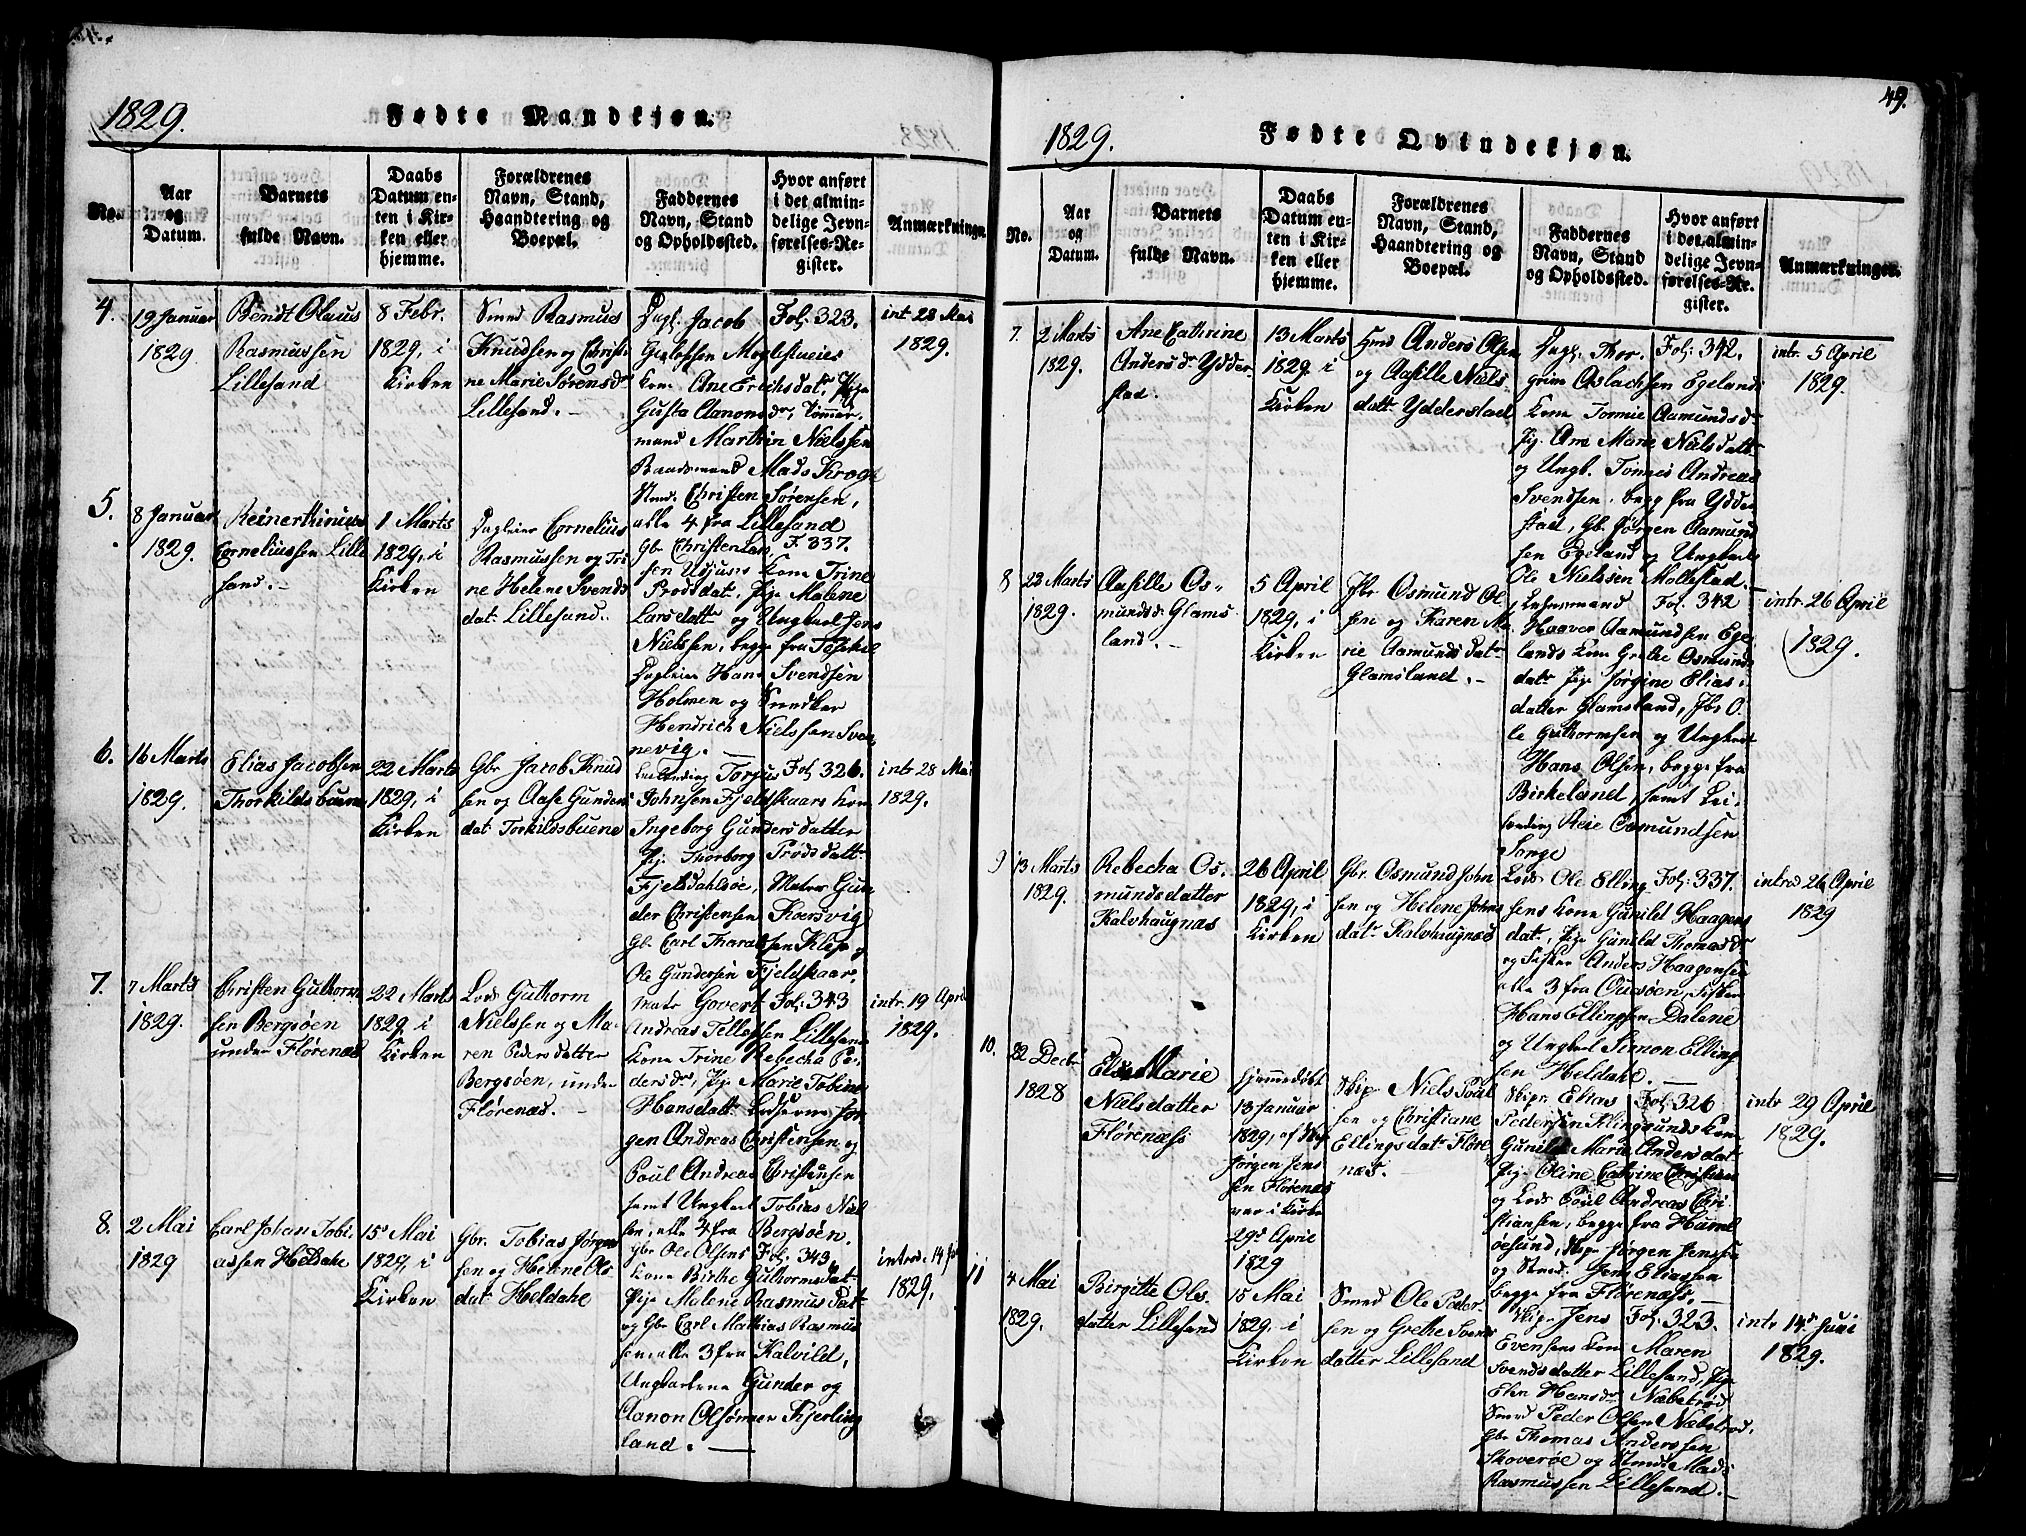 1829.
Fødte Mandkjøn.
No.
Aar
og
Datum.
Barnets
fulde Navn.
Daabs
Datum en-
ten i Kir-
ken eller
hjemme.
Forældrenes
Navn, Stand,
Haandtering og
Boepæl.
Faddernes
Navn, Stand
og Opholdssted.
Hvor anført
i det almin-
delige Jevn-
førelses-Re-
gister.
Anmærkninger.
4.
19 Januar
1829.
Bendt Olaus
Rasmussen
Lillesand
8 Febr.
1829, i
Kirken
Smed Rasmus
Knudsen og Christi-
ne Marie Sørensdr
Lillesand.
Dagl. Jacob
Gjeløfsen Moglestueies
Kone Ane Erichsdatr, Pige
Gusta Aanonsdr, Tømmer-
mand Marthin Nielssen
Baadsmand Mads Krogh
Smed. Christen Sørensen,
alle 4 fra Lillesand
Fol. 323.
int. 28 Mai
1829.
5.
8 Januar
1829.
Reinert Ninius
Corneliussen Lille
sand.
1 Marts
1829, i
Kirken
Dagleier Cornelius
Rasmussen og Tri
ne Helene Svends
datr Lillesand.
Gbr Christen Lar
sen Udjuus Kone Trine
Prodsdatr, Pige Malene
Larsdattr og Ungkarl Jens
Nielssen, begge fra
Dagleier Hans Svendsen
Holmen og Snedker
Hendrich Nielssen Sven
nevig.
F. 337.
6.
16 Marts
1829.
Elias Jacobsen
Thorkildsbuene
22 Marts
1829, i
Kirken
Gbr Jacob Knud
sen og Aase Gunders
datr Torkildsbuene
Torjus
Johnsen Fjeldskaars Kone
Ingeborg Gundersdatter
Pig. Thorborg Prodsdattr
Fjelsdahlsøe, Matr Gun
der Christensen Kaersvig
Gbr Carl Tharaldsen Klep og
Ole Gundersen Fjeldskaar.
Fol. 326.
intr 28 Mai
1829.
7.
7 Marts
1829.
Christen Guthorm
sen Bergsøen
under Flørenæs
22 Marts
1829 i
Kirken
Lods Guthorm
Nielssen og Ma-
ren Pedersdatter
Bergsøen, under
Flørenæs.
Matr Govert
Andreas Tellefsen Lillesand
Kone Trine Rebecha Pe
dersdr, Pige Marie Tobine
Hansdatt. Lodserne Jør
gen Andreas Christensen og
Poul Andreas Christensen
samt Ungkarl Tobias Niel
sen, alle 4 fra Bergsøen.
Fol. 343
intr. 19 April
1829.
8.
2 Mai
1829
Carl Johan Tobi-
assen Heldahe
15d Mai
1829, i
Kirken
Gbr. Tobias Jørgen
sen og Helene Ols
datr Heldahe
Gbr Ole Olsens
Kone Birthe Guthormsdat-
Pige Malene Rasmus Dat-
og Gbr Carl Mathias Rasmus
sen, alle 3 fra Kalvild,
Ungkarlene Gunder og
Aanon Olsønner Kjerling
land.
Fol. 343
introd. 14 Ju
1829.
49.
1829.
Fødte Qvindekjøn.
No.
Aar
og
Datum.
Barnets
fulde Navn.
Daabs
Datum en-
ten i Kir-
ken eller
hjemme.
Forældrenes
Navn, Stand,
Haandtering og
Boepæl.
Faddernes
Navn, Stand
og Opholdssted.
Hvor anført
i det almin-
delige Jevn-
førelses-Re-
gister.
Anmærkninger.
7.
2 Marts
1829.
Ane Cathrine
Andersdr Ydder-
stad.
13 Marts
1829. i
Kirken
Anders Olsen
og Aasille Niels-
datr Ydderstad
Dagl. Thor-
grim Aslachsen Egelands
Kone Tomine Aamundsdr
Pig. Ane Marie Nielsdattr
og Ungk. Tomes Andreas
Svendsen, begge fra Ydder
stad, Gb. Jørgen Aamund
sen Egeland og Ungkarl
Ole Nielssen Mollestad.
Fol. 342.
intr. 5 April
1829.
8
22 Marts
1829.
Aasille Os-
mundsdr Glams-
land.
5 April
1829, i
Kirken
Gbr Osmund Ol
sen og Karen Ma-
rie Aamundsdatr
Glamsland.
Lehnsmand
Haaver Aamundsen Ege
lands Kone Grethe Osmunds
datr Pige Jørgine Elias-
datter Glamsland, Gbr O-
le Guthormsen og Ungkarl
Hans Olsen, begge fra
Birkeland, samt Lei-
lending Reie Osmundsen
Songe
Fol. 342
intr. 26 April
1829.
9
13 Marts
1829.
Rebecha Os-
mundsdatter
Kalvhaugnæs
26 April
1829, i
Kirken
Gbr. Osmund John
sen og Helene Johns
datr Kalvhaugnæs
Lods Ole Elling
sens Kone Gunild Haagens
datr, Pige Gunild Thomasdr
og Fisker Anders Haagensen
alle 3 fra Ougsøen, Fisker
Hans Ellingsen Dalene
og Ungkarl Simon Elling
sen Heldahle.
Fol. 337.
introd 26 April
1829
10.
22 Decbr
1828
Else Marie
Nielsdatter
Flørenæss
hjemmedøbt
13 Januar
1829, af Skip
Jørgen Jens
sen Flørenæs
var i Kirke
29d April
1829
Skip. Niels Poul
sen og Christiane
Ellingsdatr Fløre
næs.
Skipr Elias
Pedersen Klingsunds Kone
Gunild Marie Andersdat
Pige Oline Catrine Christian
og Lods Poul Andreas Chri
stiansen, begge fra Humel
øesund, Skip Jørgen Jenssen
og Smed. Jens Eliassen
begge fra Flørenæss.
Fol. 326
intr 29 April
1829.
11
4 Mai
1829.
Birgitte Ols-
datter Lillesand
15 Mai
1829. i
Kirken
Smed Ole Peder-
sen og Grethe Svends
datter Lillesand
Skip. Jens
Evensens Kone Maren
Svendsdatter Lillesand, Pige
Elen Hansdr Næbetrød
Smed Peder Olsen Næbetrød.
Gbr Thomas Anderssen
Skoverøe og Smed: Mads
Rasmussen Lillesand.
Fol. 323.
intr 14d Juni
1829.